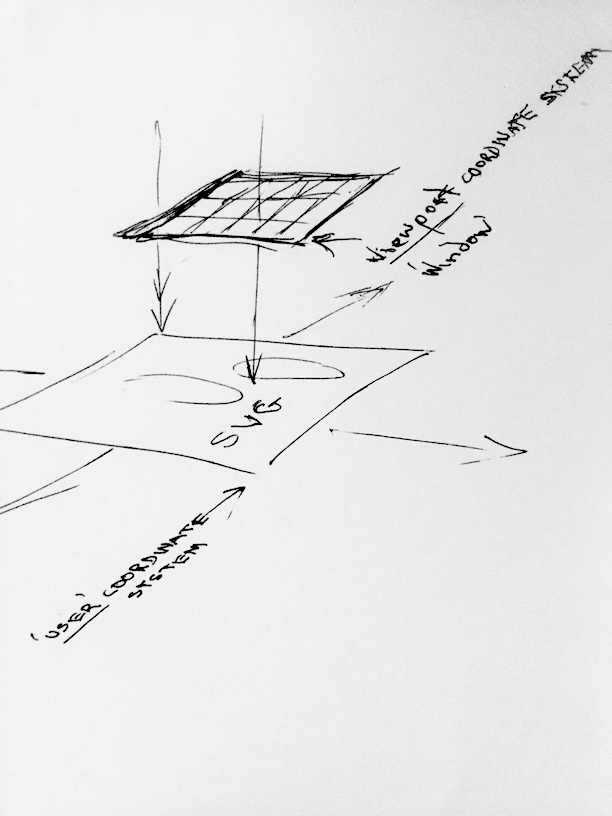 Viewport COORDINATE SYSTEM
'Window'
SVG
'USER' COORDINATE
SYSTEM